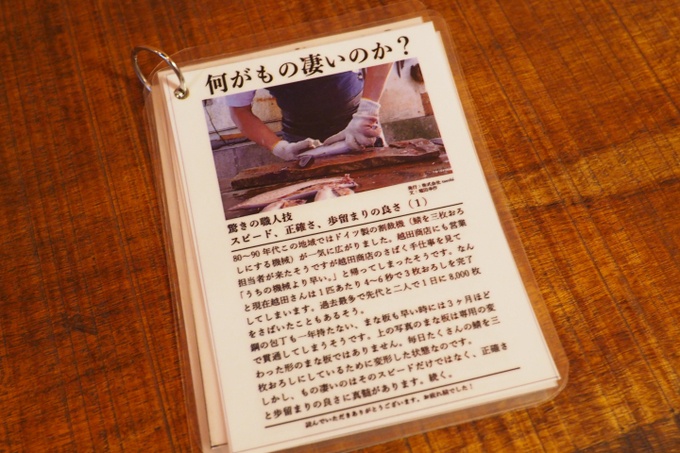 何がもの凄いのか？
発行：株式会社
文：越田
驚きの職人技
スピード、正確さ、歩留まりの良さ（1）
80～90年代この地域ではドイツ製の割裁機（鯖を三枚おろ
しにする機械）が一気に広がりました。越田商店にも営業
担当者が来たそうですが越田商店のさばく手仕事を見て
「うちの機械より早い。」と帰ってしまったそうです。なん
と現在越田さんは1匹あたり4～6秒で3枚おろしを完了
してしまいます。過去最多で先代と二人で1日に8,000枚
をさばいたこともあるそう。
鋼の包丁も一年持たない、まな板も早い時には3ヶ月ほど
で貫通してしまうそうです。上の写真のまな板は専用の変
わった形のまな板ではありません。毎日たくさんの鯖を三
枚おろしにしているために変形した状態なのです。
しかし、もの凄いのはそのスピードだけではなく、正確さ
と歩留まりの良さに真髄があります。続く。
読んでいただきありがとうございます。お疲れ様でした！